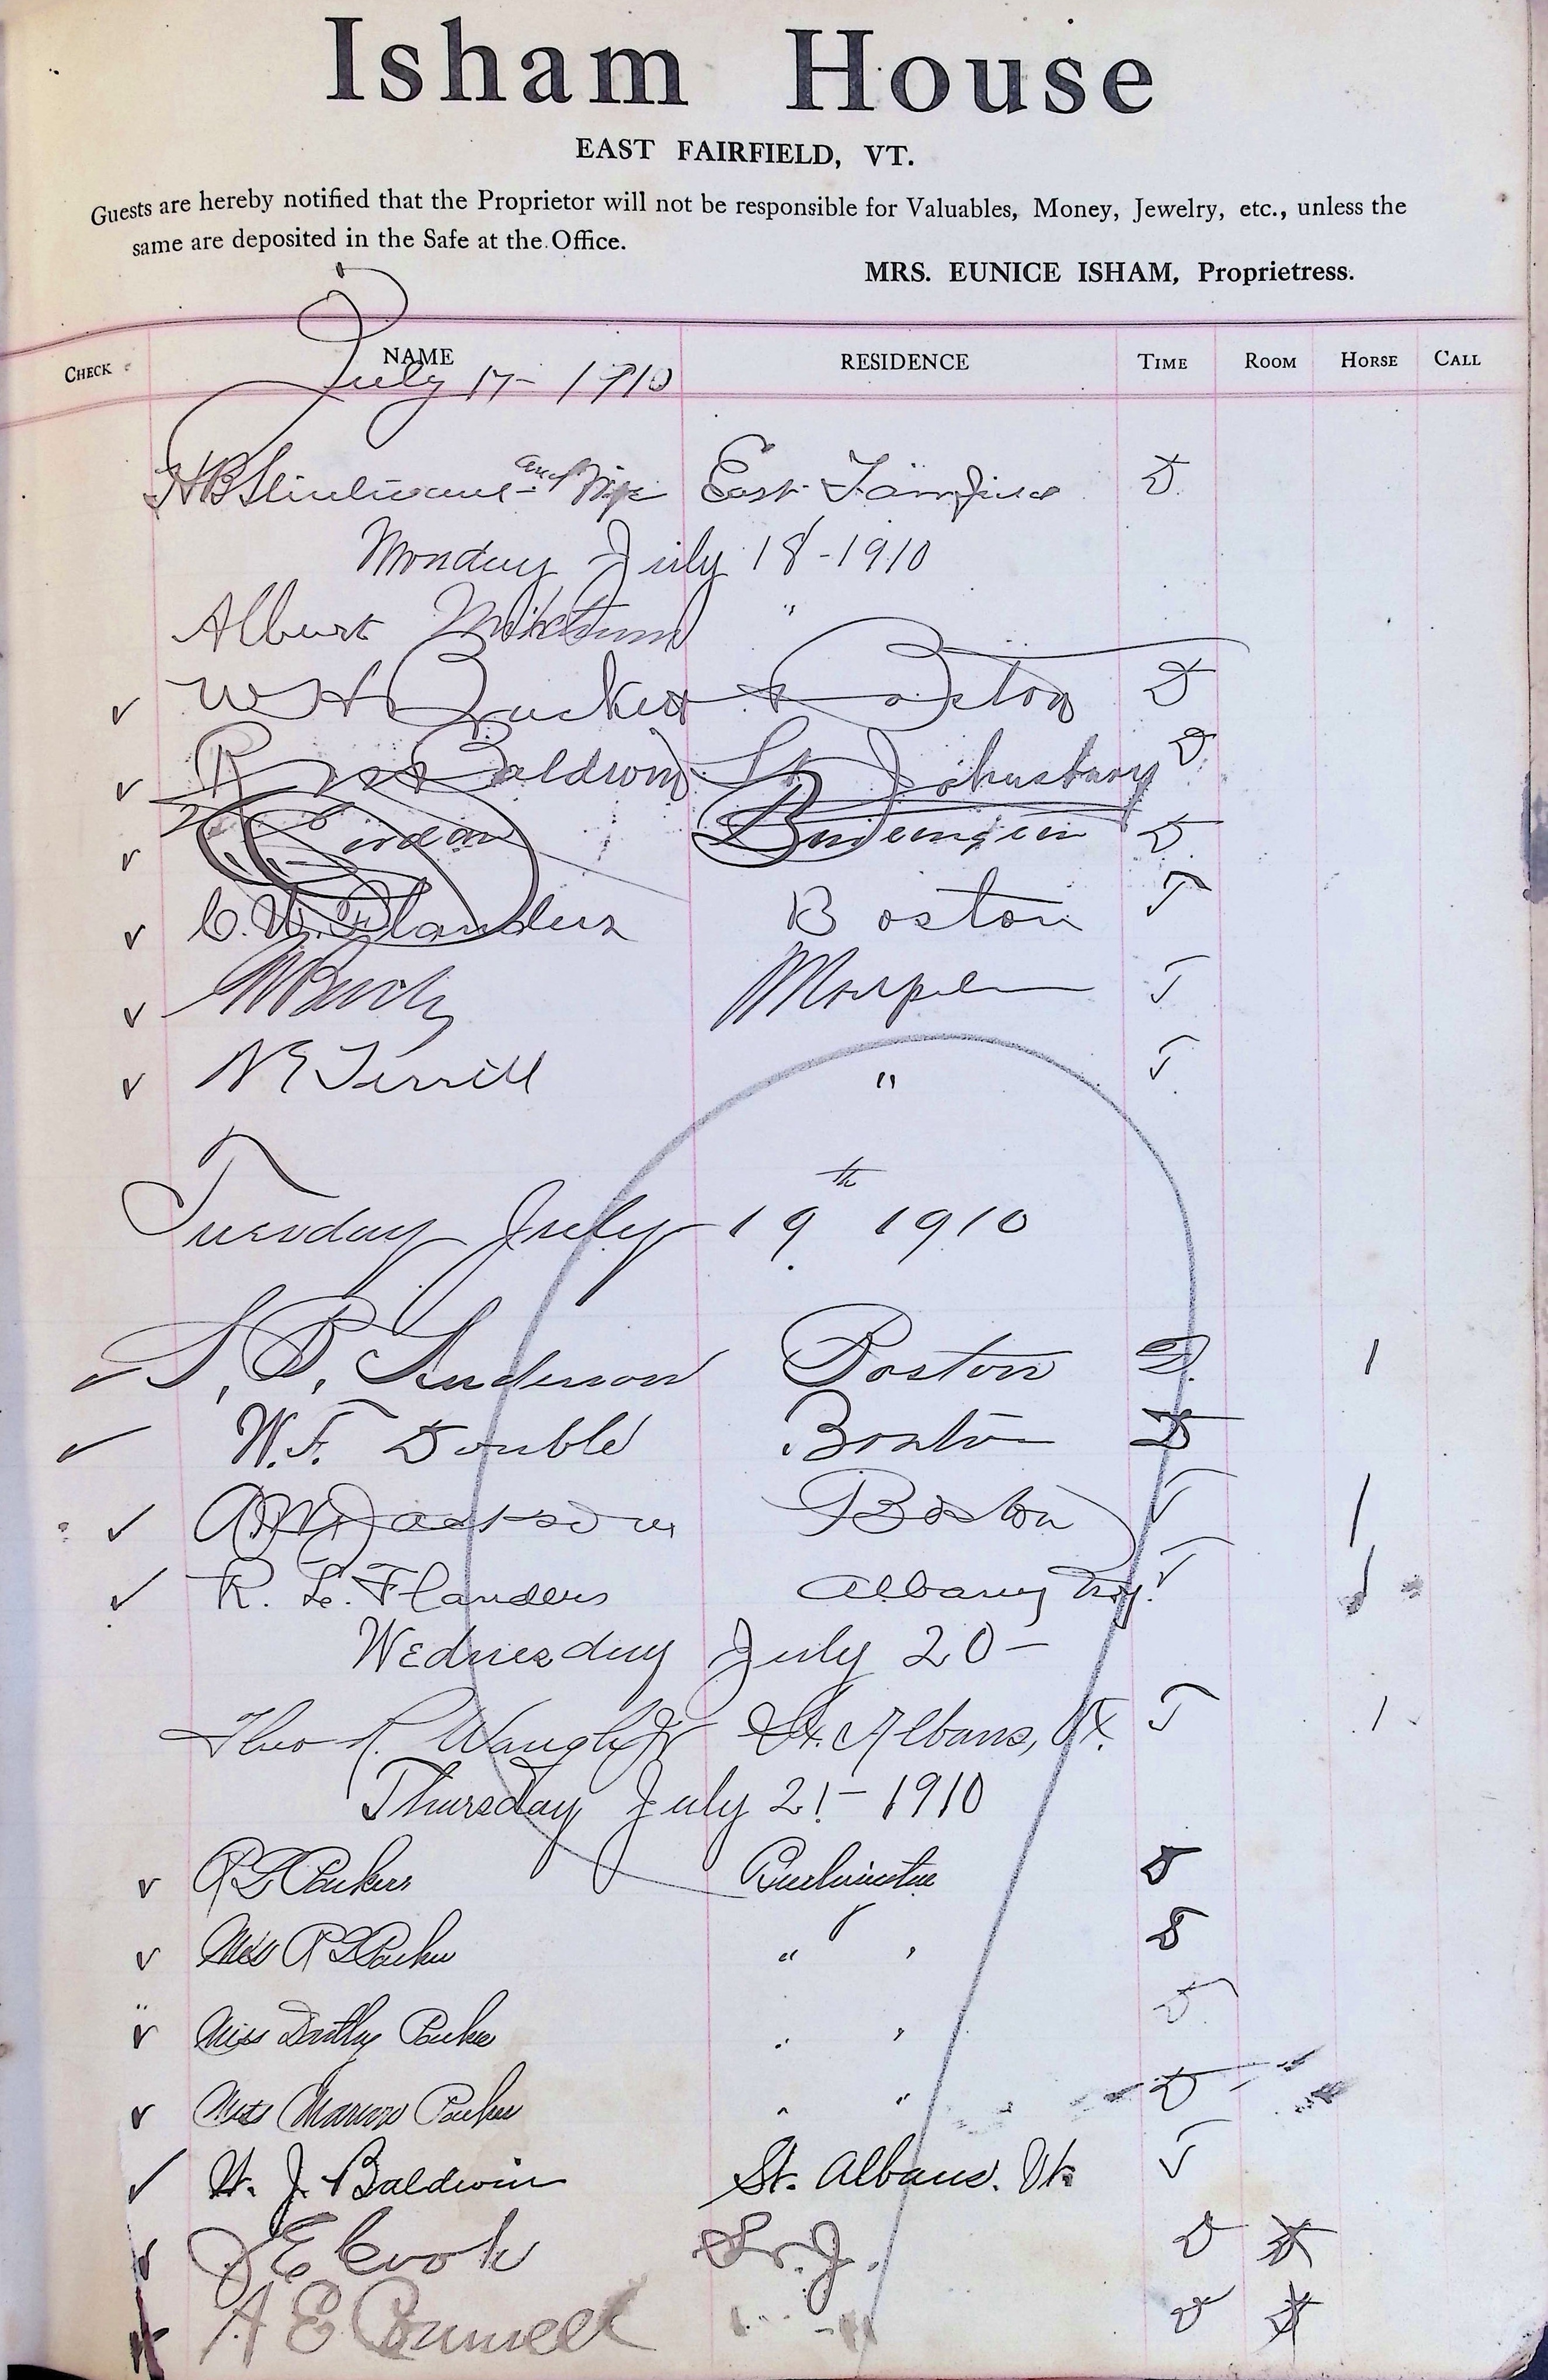 Isham House
EAST FAIRFIELD, VT.
Guests are hereby notified that the Proprietor will not be responsible for Valuables, Money, Jewelry, etc., unless the
same are deposited in the Safe at the Office.
MRS. EUNICE ISHAM, Proprietress.
CHECK NAME RESIDENCE TIME ROOM HORSE CALL
July 17 - 1910
and Wife East Fairfield D
Monday July 18 - 1910
Albert "
W H Boston D
Baldwin St Johnsbury D
Burlington D
C. W. Flanders Boston T
T
N E Terrill " T
Tuesday July 19th 1910
S. P. Anderson Boston D. 1
W. F. Double Boston D
Jackson Boston T 1
R. L. Flanders Albany N.Y. T 1
Wednesday July 20 -
Theo R. Waugh Jr St. Albans, Vt. T 1
Thursday July 21 - 1910
Burlington D
" " D
Miss D
Miss Marion " D
H. J. Baldwin St. Albans. Vt. T
J E Cook St. J. D
A E D